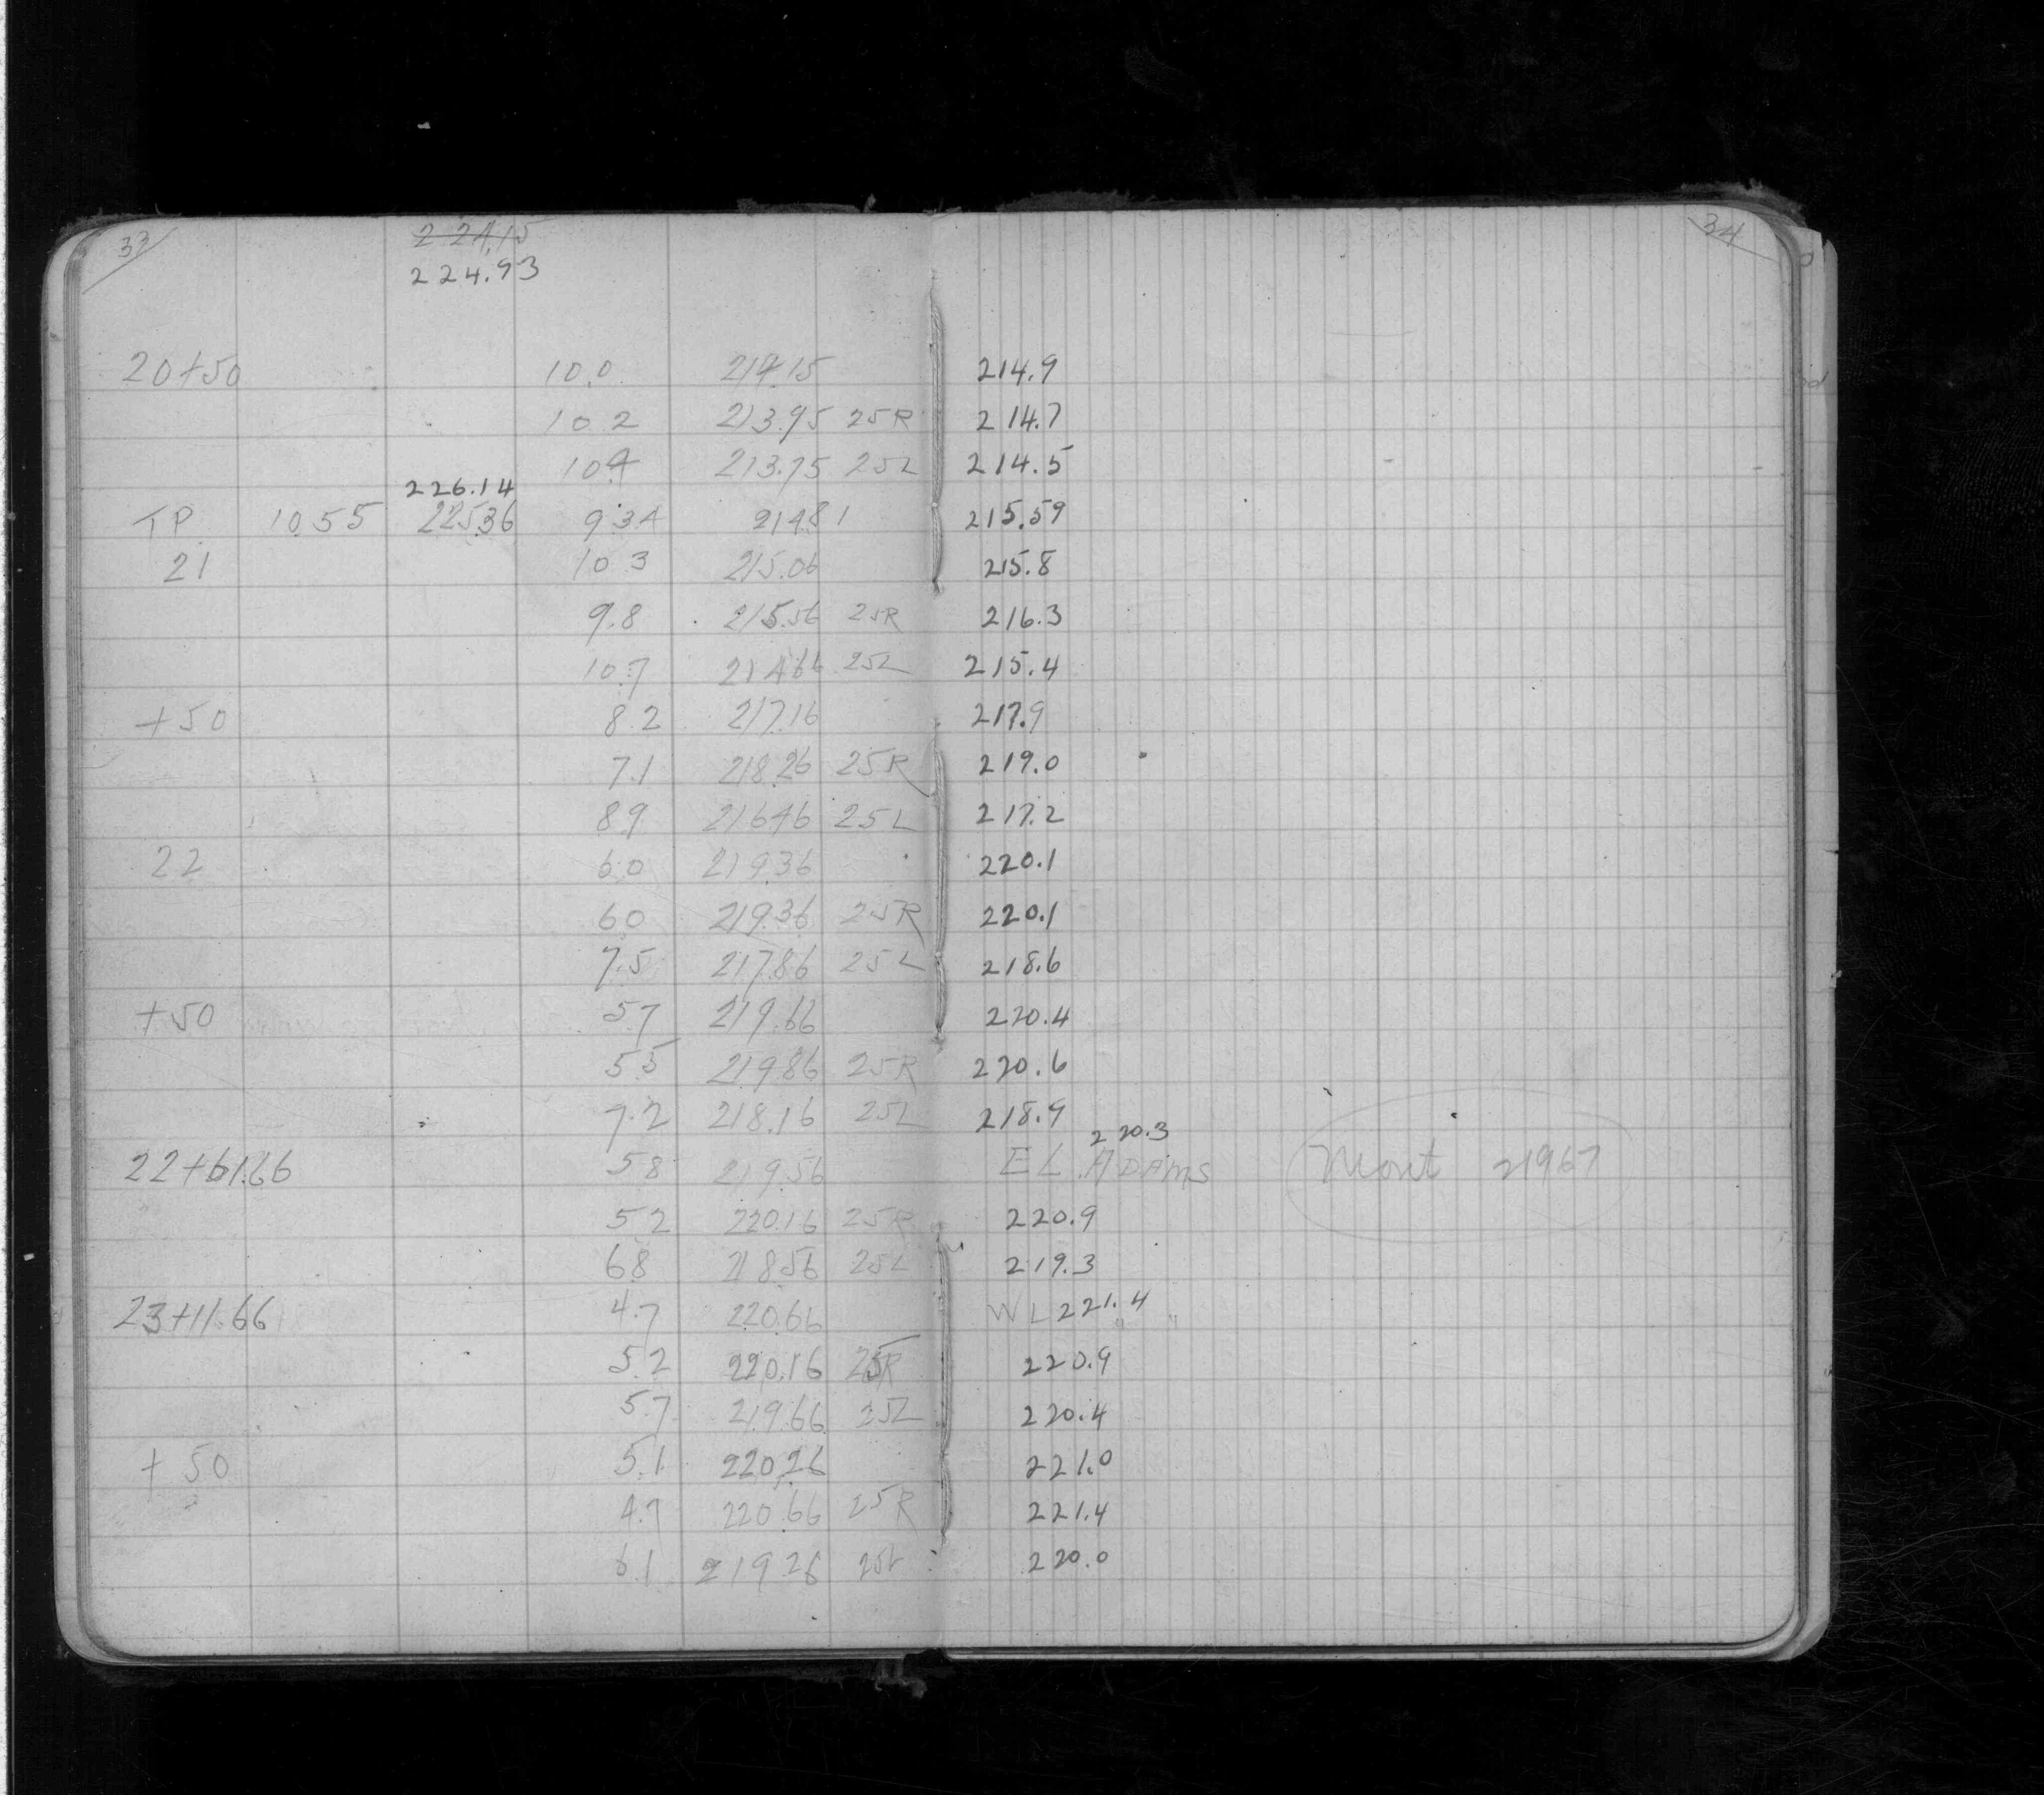 33 224.15 34
224.93
20+50 10.0 214.15 214.9
10.2 213.95 25R 214.7
10.4 213.75 25L 214.5
226.14
TP 10.55 225.36 9.34 214.81 215.59
21 10.3 215.06 215.8
9.8 215.56 25R 216.3
10.7 214.66 25L 215.4
+50 8.2 217.16 217.9
7.1 218.26 25R 219.0
8.9 216.46 25L 217.2
22 6.0 219.36 220.1
6.0 219.36 25R 220.1
7.5 217.86 25L 218.6
+50 5.7 219.66 220.4
5.5 219.86 25R 220.6
7.2 218.16 25L 218.9
220.3
22+61.66 5.8 219.56 EL ADAMS Mont 21967
5.2 220.16 25R 220.9
6.8 218.56 25L 219.3
23+11.66 4.7 220.66 WL 221.4 " "
5.2 220.16 25R 220.9
5.7 219.66 25L 220.4
+50 5.1 220.26 221.0
4.7 220.66 25R 221.4
6.1 219.26 25L 220.0